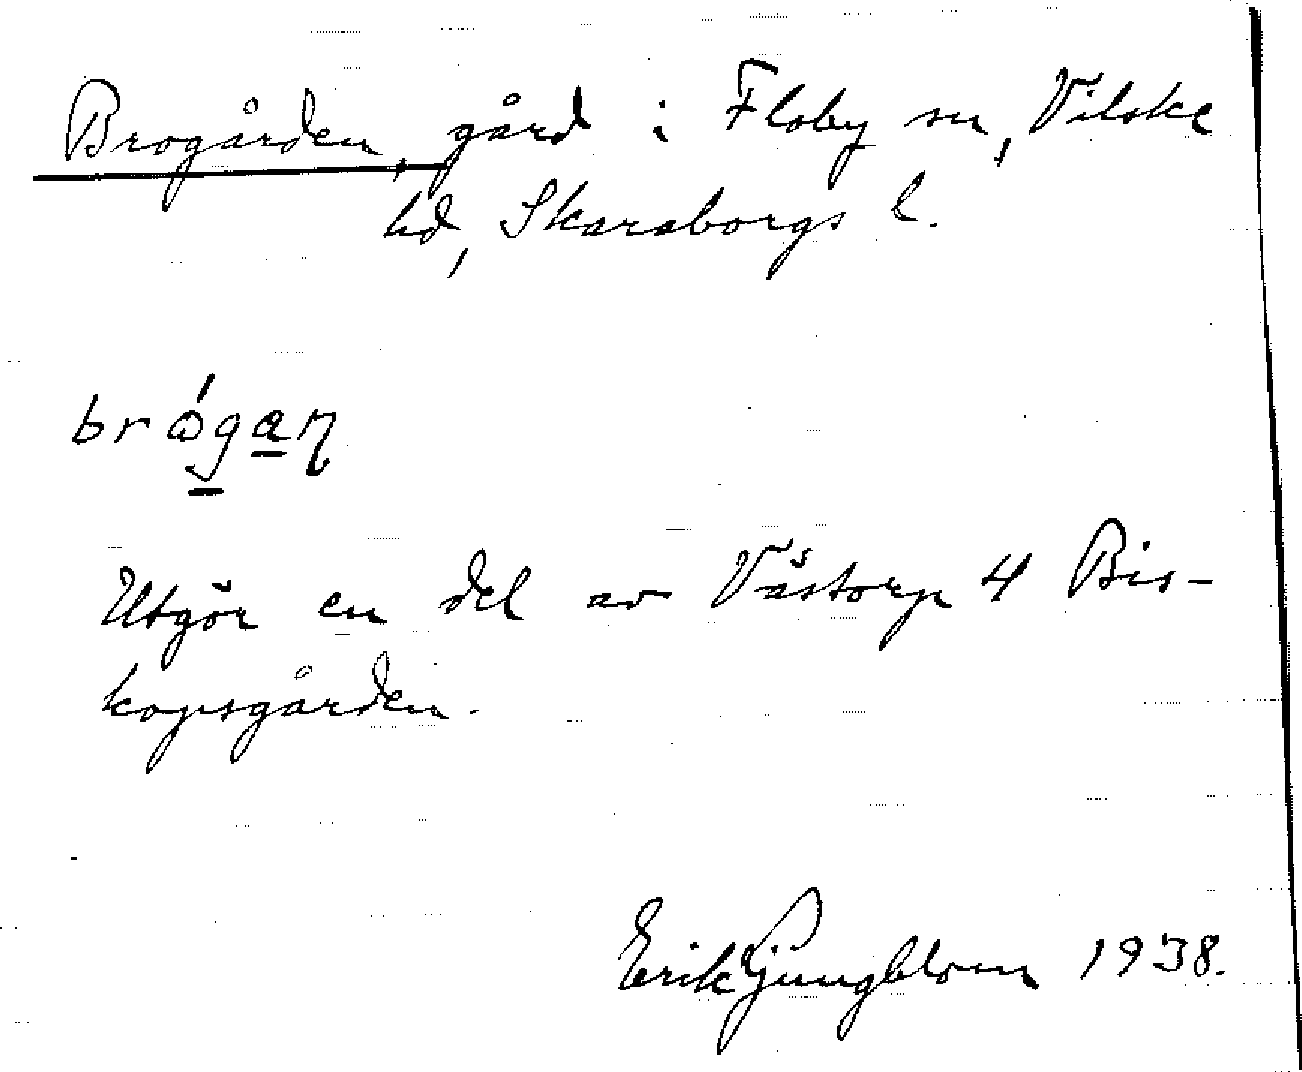 Brogården, gård i Floby sn, Vilske
hd, Skaraborgs l.
brógaɳ
Utgör en del av Västorp 4 Bis-
kopsgården.
Erik Ljungblom 1938.